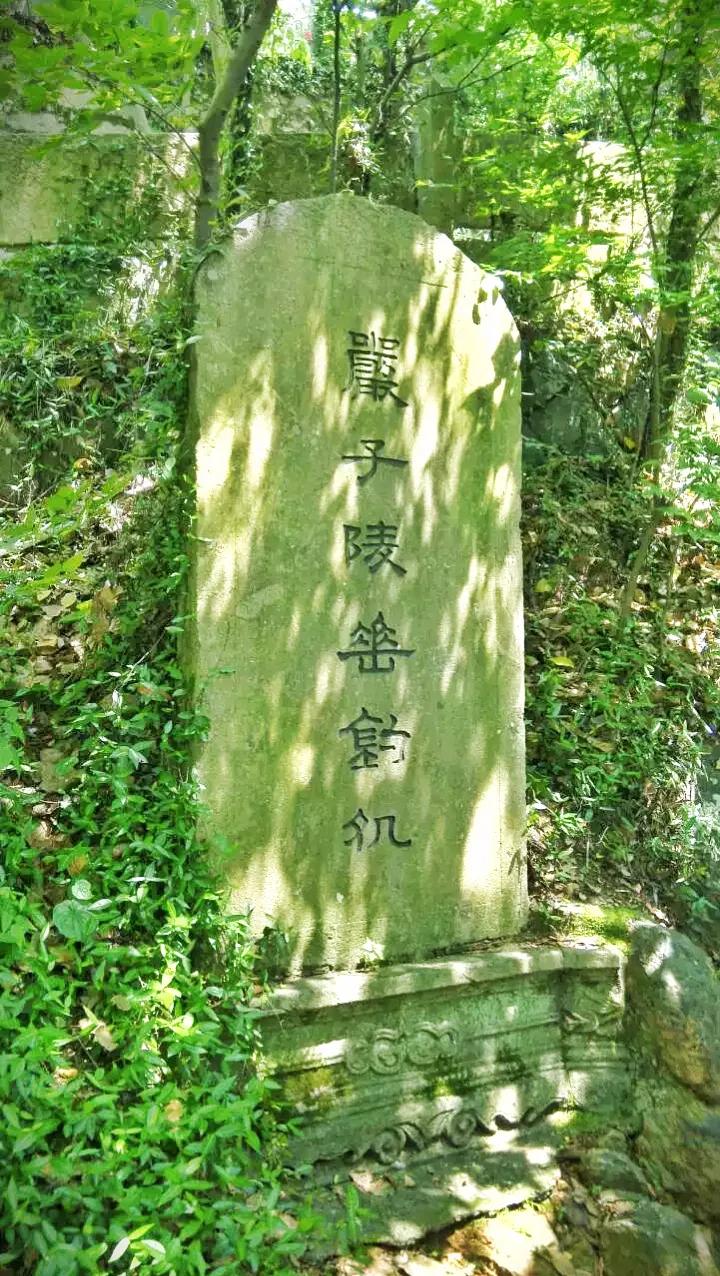 嚴子陵垂釣処